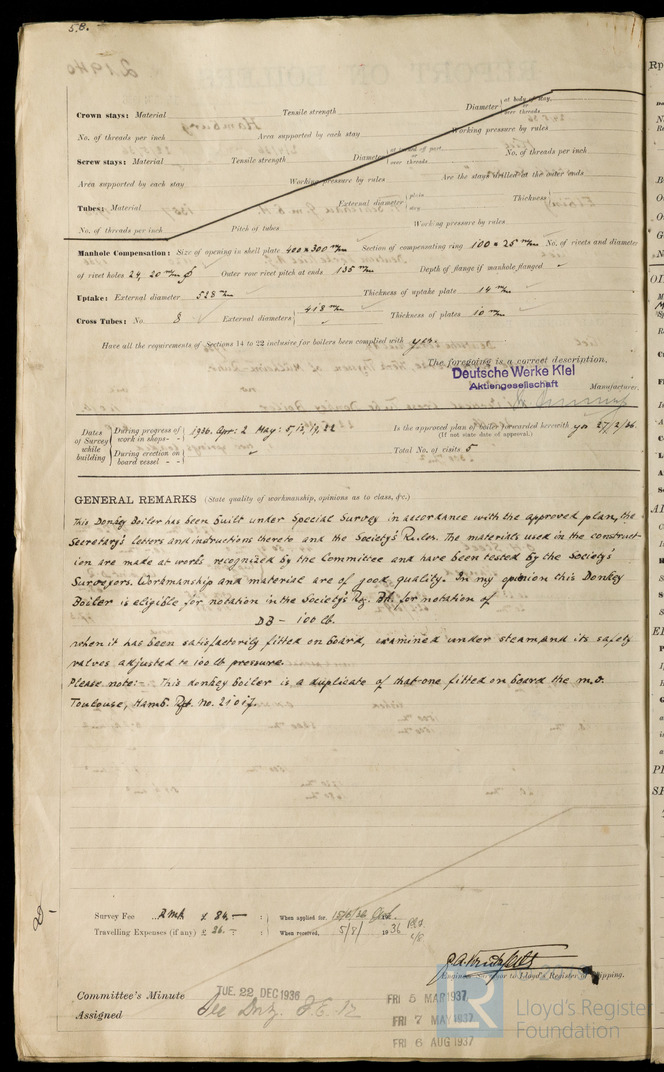 5.B.
Crown stays: Material Tensile strength Diameter at body of stay, or over threads
No. of threads per inch Area supported by each stay Working pressure by rules
Screw stays: Material Tensile strength Diameter or over threads No. of threads per inch
Area supported by each stay Working pressure by rules Are the stays drilled at the outer ends
Tubes: Material External diameter plain stay Thickness
No. of threads per inch Pitch of tubes Working pressure by rules
Manhole Compensation: Size of opening in shell plate 400 x 300 m/m Section of compensating ring 100 x 26 m/m No. of rivets and diameter
of rivet holes 24, 20 m/m ø Outer row rivet pitch at ends 135 m/m Depth of flange if manhole flanged
Uptake: External diameter 528 m/m Thickness of uptake plate 14 m/m
Cross Tubes: No. 8 External diameters 418 m/m Thickness of plates 10 m/m
Have all the requirements of Sections 14 to 22 inclusive for boilers been complied with yes
The foregoing is a correct description,
Deutsche Werke Kiel
Aktiengesellschaft
Manufacturer.
Dates of Survey while building
During progress of work in shops - - 1936. Apr: 2 May: 5, 13, 19, 22
During erection on board vessel - -
Is the approved plan of boiler forwarded herewith yes 27/2/36.
(If not state date of approval.)
Total No. of visits 5
GENERAL REMARKS (State quality of workmanship, opinions as to class, &c.)
This Donkey Boiler has been built under Special Survey in accordance with the approved plan, the
Secretary's letters and instructions thereto and the Society's Rules. The materials used in the construct-
ion are made at works recognized by the Committee and have been tested by the Society's
Surveyors. Workmanship and material are of good quality. In my opinion this Donkey
Boiler is eligible for notation in the Society's Rg. Bk. for notation of
DB - 100 lb.
when it has been satisfactorily fitted on board, examined under steam and its safety
valves adjusted to 100 lb pressure.
Please note:- This donkey boiler is a duplicate of that one fitted on board the m.v.
Toulouse, Hamb. Rpt. No. 21017.
Survey Fee ... RMK £ 84.- : When applied for, 15/6/36
Travelling Expenses (if any) £ 26. - : When received, 5/8/ 1936
Engineer Surveyor to Lloyd's Register of Shipping.
Committee's Minute TUE. 22 DEC 1936 FRI 5 MAR 1937
Assigned See F.E. FRI 7 MAY 1937
FRI 6 AUG 1937
Lloyd's Register
Foundation